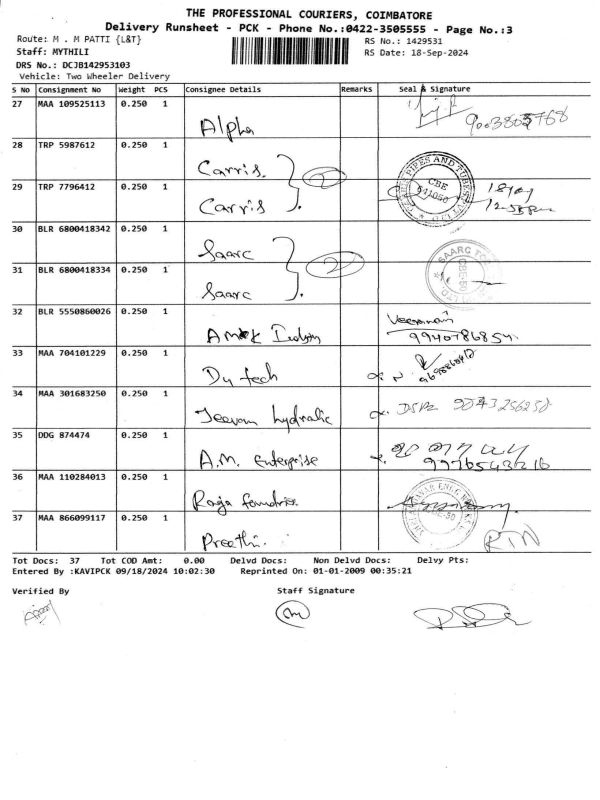 THE PROFESSIONAL COURIERS, COIMBATORE
Delivery Runsheet - PCK - Phone No.:0422-3505555 - Page No.:3
Route: M . M PATTI {L&T}
RS No.: 1429531
Staff: MYTHILI
RS Date: 18-Sep-2024
DRS No.: DCJB142953103
Vehicle: Two Wheeler Delivery
S No Consignment No Weight PCS Consignee Details Remarks Seal & Signature
27 MAA 109525113 0.250 1
Alpha
28 TRP 5987612 0.250 1
Carris
2
PIPES AND TUBES
CBE
641050
29 TRP 7796412 0.250 1
Carris
30 BLR 6800418342 0.250 1
Saarc
2
SAARC
31 BLR 6800418334 0.250 1
Saarc
32 BLR 5550860026 0.250 1
33 MAA 704101229 0.250 1
Dy tech
34 MAA 301683250 0.250 1
Jeevan hydralic
35 DDG 874474 0.250 1
A.M. Enterprise
9976543216
36 MAA 110284013 0.250 1
Raja
37 MAA 866099117 0.250 1
Preathi.
Tot Docs: 37 Tot COD Amt: 0.00 Delvd Docs: Non Delvd Docs: Delvy Pts:
Entered By :KAVIPCK 09/18/2024 10:02:30 Reprinted On: 01-01-2009 00:35:21
Verified By Staff Signature